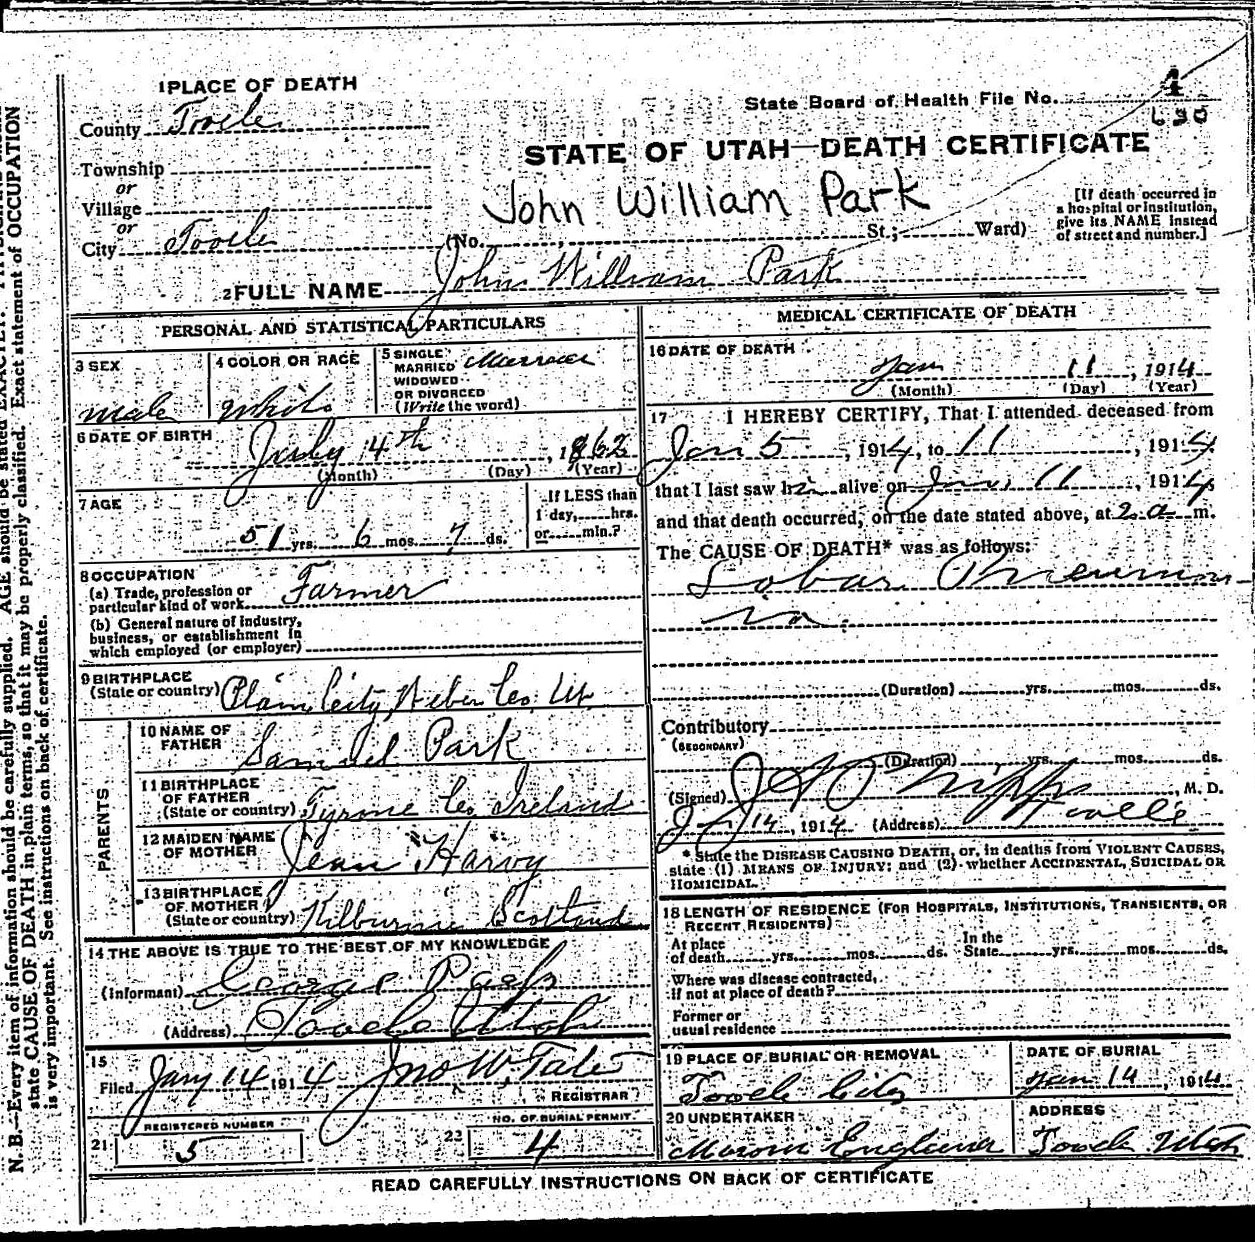 1 PLACE OF DEATH
County Tooele
Township
or
Village
or
City Tooele
State Board of Health File No. 4
630
STATE OF UTAH—DEATH CERTIFICATE
John William Park
(No. , St.; Ward)
[If death occurred in
a hospital or institution,
give its NAME instead
of street and number.]
2 FULL NAME John William Park
PERSONAL AND STATISTICAL PARTICULARS
3 SEX
male
4 COLOR OR RACE
White
5 SINGLE
MARRIED
WIDOWED
OR DIVORCED
(Write the word)
Married
6 DATE OF BIRTH
July 4th, 1862
(Month) (Day) (Year)
7 AGE
51 yrs. 6 mos. 7 ds.
If LESS than
1 day, hrs.
or min.?
8 OCCUPATION
(a) Trade, profession or
particular kind of work Farmer
(b) General nature of industry,
business, or establishment in
which employed (or employer)
9 BIRTHPLACE
(State or country) Plain City, Weber Co, Ut.
PARENTS
10 NAME OF
FATHER
Samuel Park
11 BIRTHPLACE
OF FATHER
(State or country) Tyrone Co, Ireland
12 MAIDEN NAME
OF MOTHER
Jean Harvy
13 BIRTHPLACE
OF MOTHER
(State or country) Kilburnie Scotland
14 THE ABOVE IS TRUE TO THE BEST OF MY KNOWLEDGE
(Informant) George
(Address) Tooele Utah
15
Filed Jany 14 1914 Jno W, Tate
REGISTRAR
REGISTERED NUMBER
21 5
NO. OF BURIAL PERMIT
22 4
MEDICAL CERTIFICATE OF DEATH
16 DATE OF DEATH
Jan 11, 1914
(Month) (Day) (Year)
17 I HEREBY CERTIFY, That I attended deceased from
Jan 5, 1914, to 11, 1914.
that I last saw him alive on Jan, 11, 1914,
and that death occurred, on the date stated above, at 2 a m.
The CAUSE OF DEATH* was as follows:
Lobar Pneumon
ia.
(Duration) yrs. mos. ds.
Contributory
(SECONDARY)
(Duration) yrs. mos. ds.
(Signed) Phipps, M. D.
Jan 14, 1914 (Address) Tooele
* State the DISEASE CAUSING DEATH, or, in deaths from VIOLENT CAUSES,
state (1) MEANS OF INJURY; and (2) whether ACCIDENTAL, SUICIDAL OR
HOMICIDAL.
18 LENGTH OF RESIDENCE (FOR HOSPITALS, INSTITUTIONS, TRANSIENTS, OR
RECENT RESIDENTS)
At place
of death yrs. mos. ds.
In the
State yrs. mos. ds.
Where was disease contracted,
if not at place of death?
Former or
usual residence
19 PLACE OF BURIAL OR REMOVAL
Tooele City
DATE OF BURIAL
Jan 14, 1914
20 UNDERTAKER
England
ADDRESS
Tooele Utah
READ CAREFULLY INSTRUCTIONS ON BACK OF CERTIFICATE
N. B.—Every item of information should be carefully supplied. AGE should be stated EXACTLY.
state CAUSE OF DEATH in plain terms, so that it may be properly classified. Exact statement of OCCUPATION
is very important. See instructions on back of certificate.